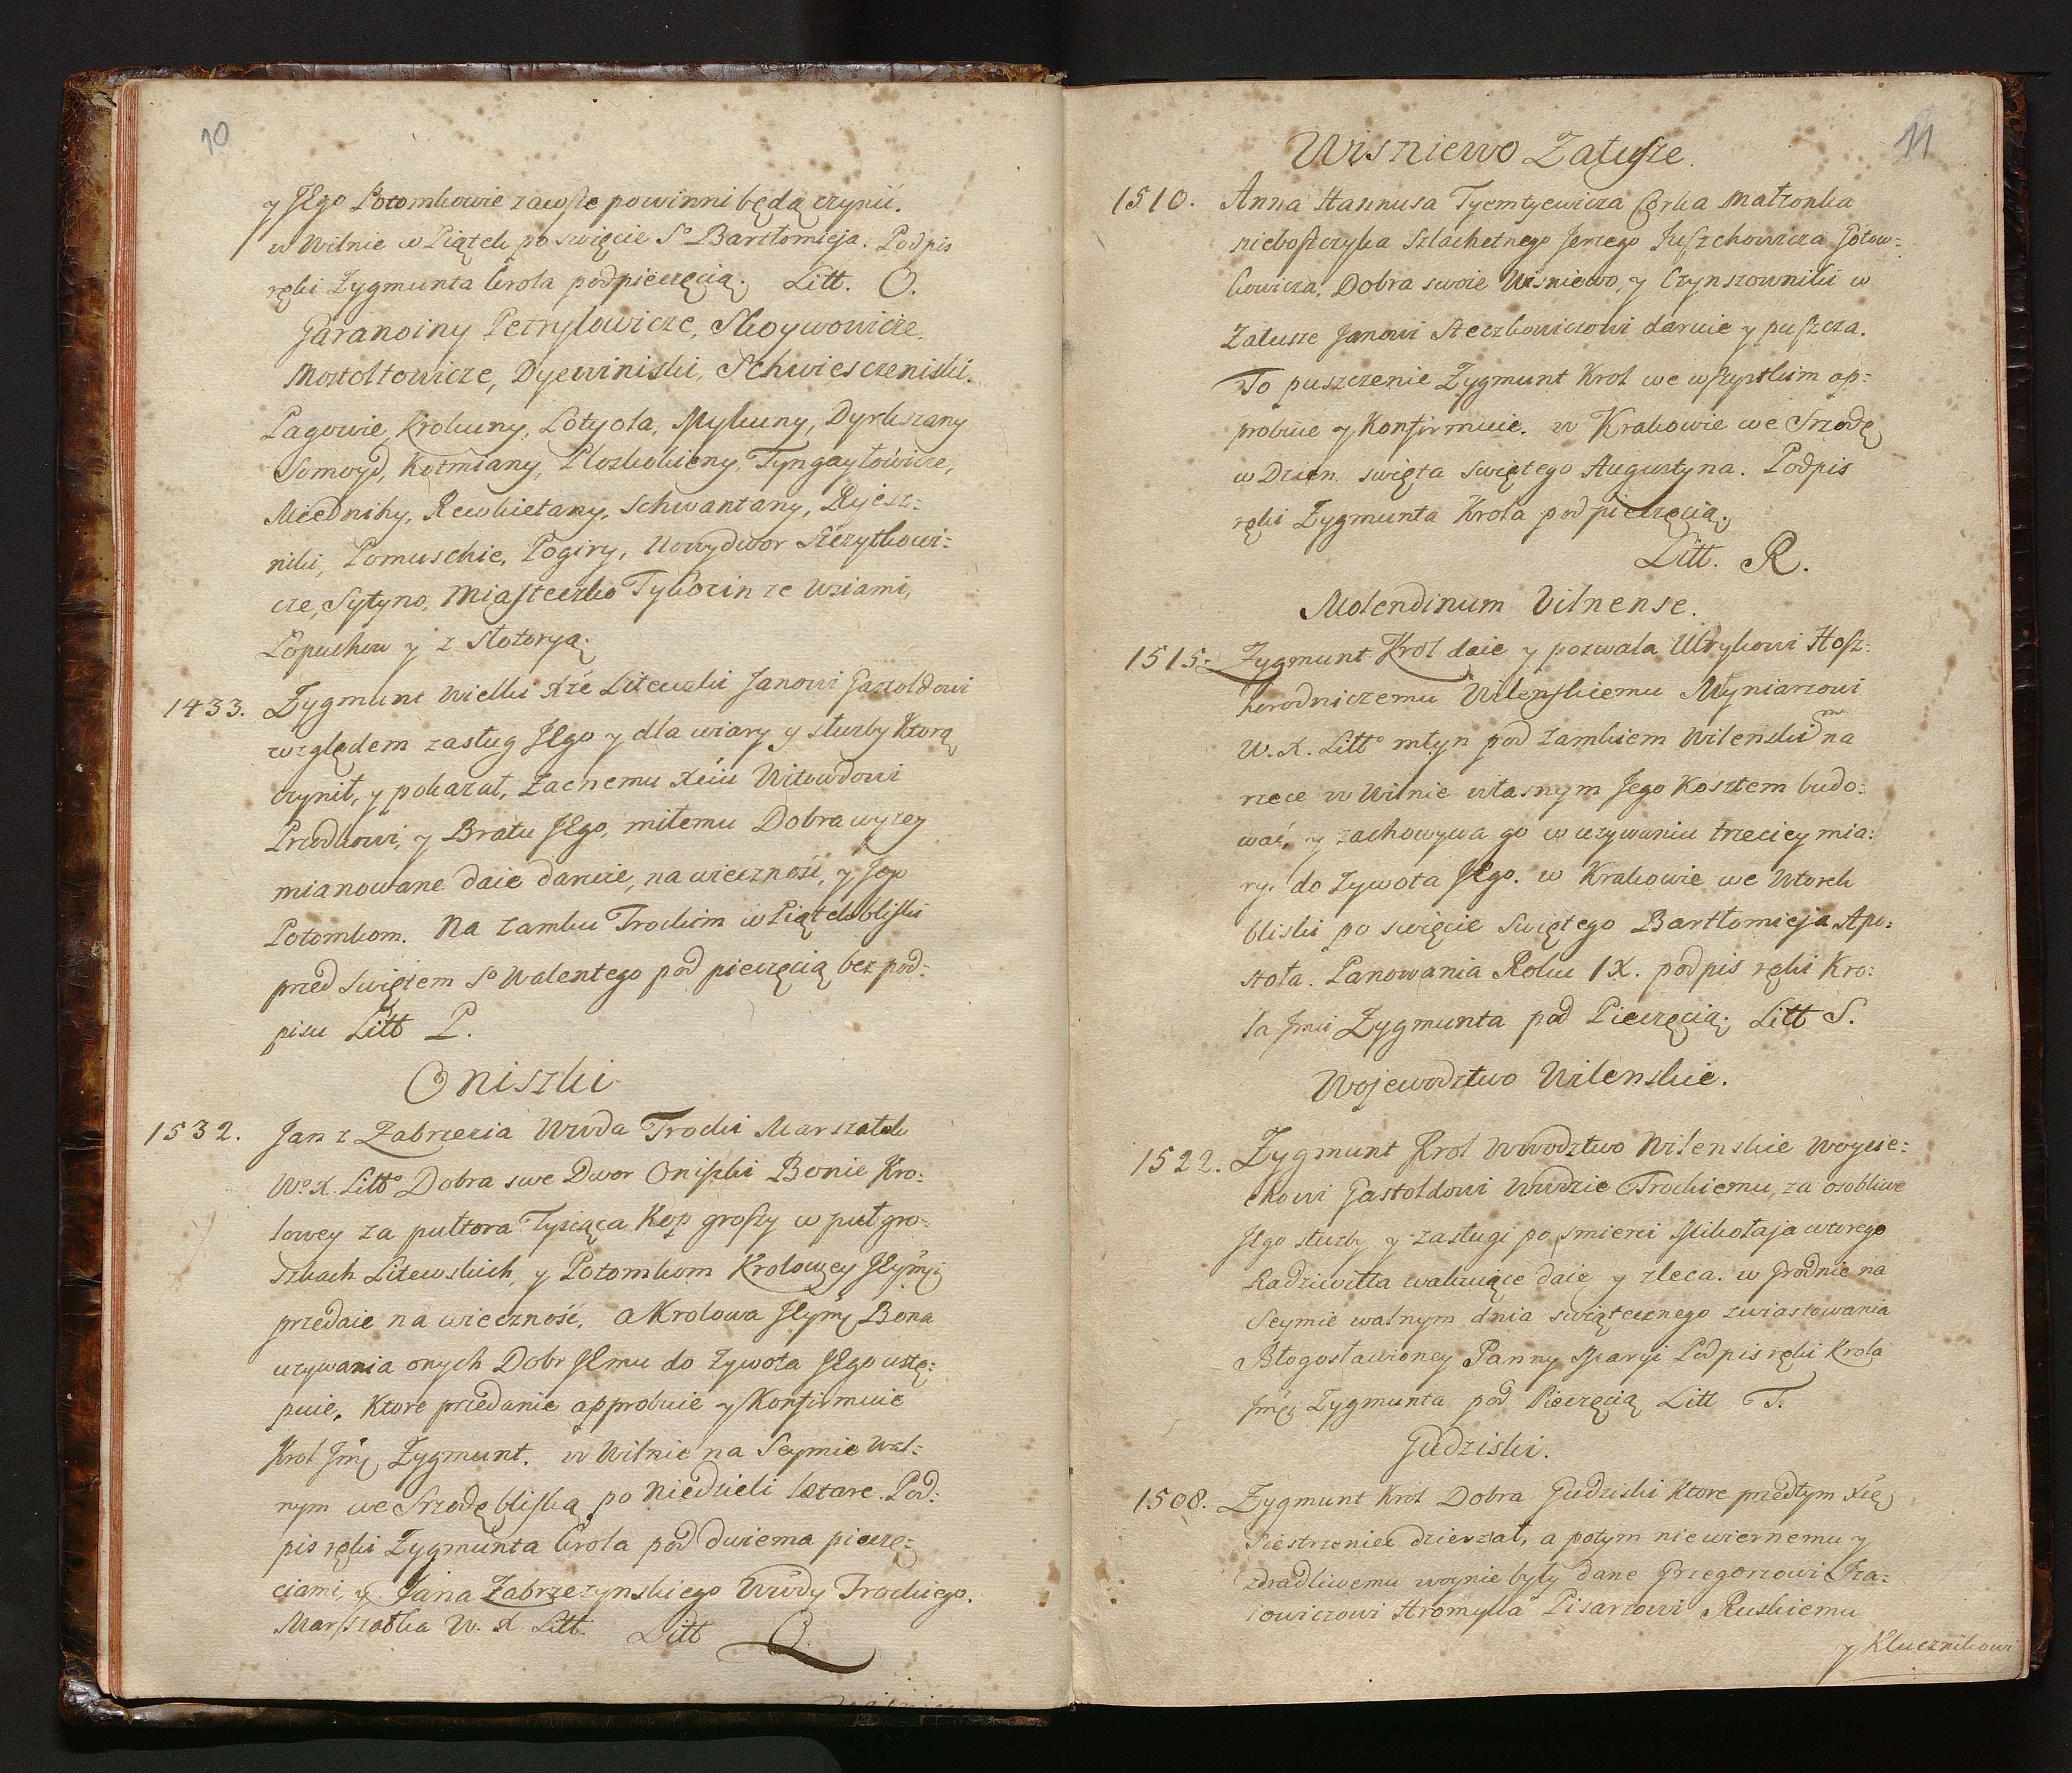 10
y JEgo Potomkowie zawsze powinni będą czynić.
w Wilnie w Piątek po swięcie So Bartłomieja. Podpis
ręki Zygmunta Krola pod pieczęcią. Litt. O.
Garanoiny Petrylowicze, Skoywowicze.
Mostoltowicze, Dyewiniski, Schwiesczeniski.
Pagowie, Krokuny, Lotyola, Mykuny, Dyrkszany
Somoyd, Kotmiany, Ploskokieny, Tyngayłowicze,
Miedniky, Rewkietany, Schwantany, Ryiesz:
niki, Pomuschie, Pogiry, Nowydwor Sczytkowi:
cze, Sytyno, Miasteczko Tykocin ze Wsiami,
Lopuchow y z Słotoryą.
1433. Zygmunt Wielki Xże Litewski Janowi Gastoldowi
względem zasług JEgo y dla wiary y służby Ktorą
czynił, y pokazał, Zacnemu Xciu Witowdowi
Przodkowi, y Bratu JEgo, miłemu Dobra wyzey
mianowane daie daruie, na wieczność, y Jego
Potomkom. Na Zamku Trockim w Piątek bliski
przed Swiętem So Walentego pod pieczęcią bez pod:
pisu Litt P.
Oniszki
1532. Jan z Zabrzezia Wwda Trocki Marszałek
Wo. X. Litto Dobra swe Dwor Oniszki Bonie Kro:
lowey za pułtora Tysiąca Kop groszy w puł gro:
szkach Litewskich, y Potomkom Krolowey JEymci
przedaie na wieczność, a Krolowa JEym Bona
uzywania onych Dobr JEmu do Zywota JEgo ustę:
puie, Ktore przedanie approbuie y Konfirmuie
Krol Jmć Zygmunt. w Wilnie na Seymie Wal:
nym we Srzodę bliską po Niedzieli laetare. Pod:
pis ręki Zygmunta Krola pod dwiema pieczę:
ciami, y Jana Zabrzezynskiego Wwdy Trockiego.
Marszałka W. X. Litt. Litt Q.
11
Wisniewo Zalusze.
1510. Anna Hannusa Tyemtyewicza Corka Małzonka
nieboszczyka Szlachetnego Jerzego Juszchowicza Gotow:
kowicza, Dobra swoie Wisniewo, y Czynszowniki w
Zalusze Janowi Steczkowiczowi daruie y puszcza.
To puszczenie Zygmunt Krol we wszystkim ap:
probuie y Konfirmuie. w Krakowie we Srzodę
w Dzien swięta swiętego Augustyna. Podpis
ręki Zygmunta Krola pod pieczęcią.
Litt. R.
Molendinum Vilnense.
1515. Zygmunt Krol daie y pozwala Ulrykowi Hosz:
horodniczemu Wilenskiemu Myniarzowi
W. X. Litto młyn pod zamkiem Wilenskim na
rzece w Wilnie własnym Jego Kosztem budo:
wać, y zachowywa go w uzywaniu trzeciey mia:
ry, do Zywota JEgo. w Krakowie we Wtorek
bliski po swięcie Swiętego Bartłomieja Apo:
stoła. Panowania Roku IX. podpis ręki Kro:
la Jmci Zygmunta pod Pieczęcią. Litt S.
Wojewodztwo Wilenskie.
1522. Zygmunt Krol Wwodztwo Wilenskie Woycie:
chowi Gastoldowi Wwdzie Trockiemu, za osobliwe
JEgo służby y zasługi po smierci Mikołaja wtorego
Radziwiłła wakuiące daie y zleca. w Grodnie na
Seymie walnym dnia swiątecznego zwiastowania
Błogosławioney Panny Maryi Podpis ręki Krola
Jmci Zygmunta pod Pieczęcią Litt T.
Gudziski.
1508. Zygmunt Krol Dobra Gudziski Ktore przedtym Xże
Siestrzeniec dzierzał, a potym niewiernemu y
zdradliwemu woynie były dane Gregorzowi Isa:
iowiczowi Hromyka Pisarzowi Ruskiemu
y Klucznikowi